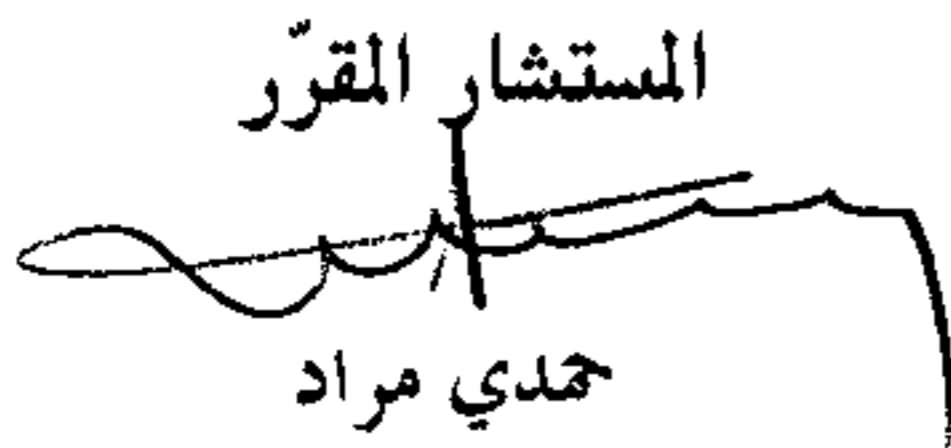 المستشار المقرّر
حمدي مراد